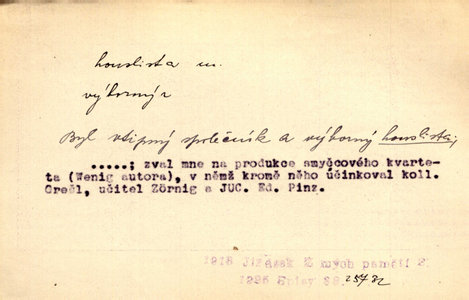 houslista m.
výborný
Byl vtipný společník a výborný houslista,
.....; zval mne na produkce smyčcového kvarte-
ta (Wenig autora), v němž kromě něho účinkoval koll.
Grečl, učitel Zörnig a JUC. Ed. Pinz.
1918 Jirásek Z mých pamětí